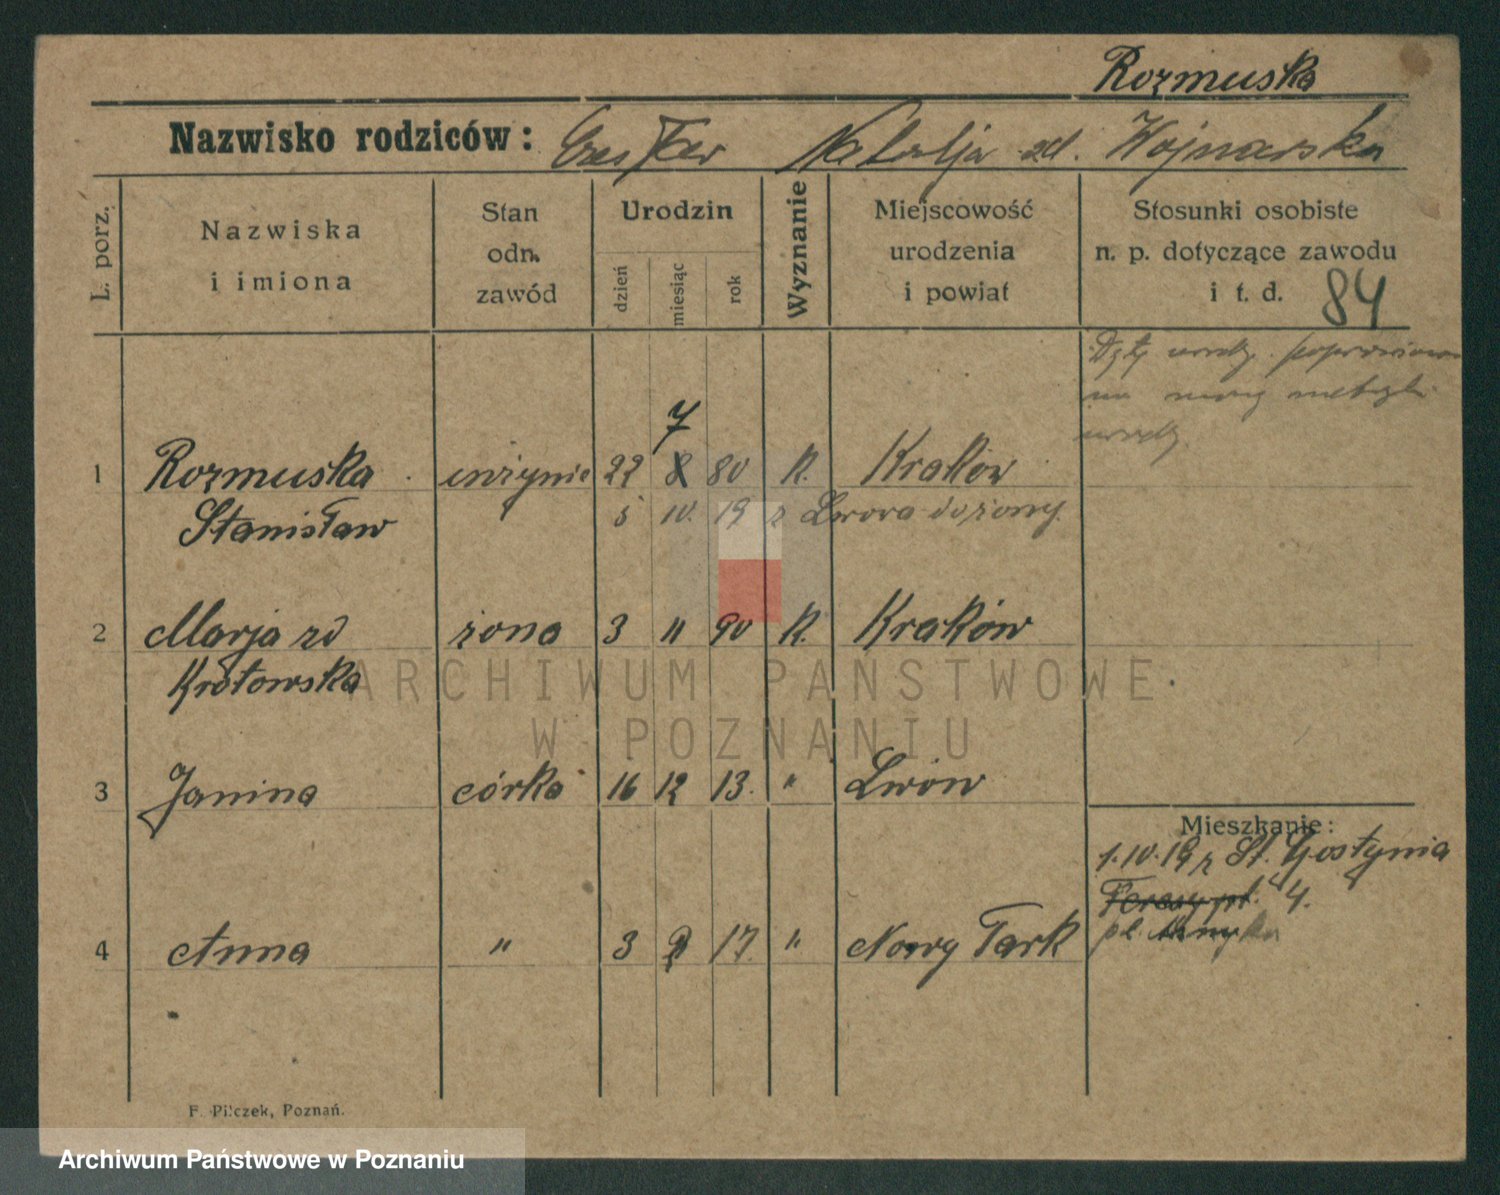 Rozmuska
Nazwisko rodziców: Czesław Natalja zd. Wojnarska
L. porz.
Nazwiska
i imiona
Stan
odn.
zawód
Urodzin
dzień
miesiąc
rok
Wyznanie
Miejscowość
urodzenia
i powiat
Stosunki osobiste
n. p. dotyczące zawodu
i t. d. 84
urodz.
metryki
urodz.
7
1 Rozmuska inżynie 22 8 80 K. Kraków
Stanisław 5 10. 19 z Lwowa do żony.
2 Marja zd żona 3 11 90 K. Kraków
Krotowska
ARCHIWUM PAŃSTWOWE
W POZNANIU
3 Janina córka 16 12 13. " Lwów
Mieszkanie:
1.10.19 z St. Gostynia
4.
pl.
4 Anna " 3 17. " Nowy Tark
F. Pilczek, Poznań.
Archiwum Państwowe w Poznaniu